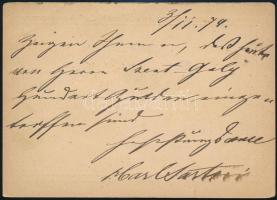 3/11. 79.
Zeigen Ihnen an, daß heute
von Herrn Szent-Gály
Hundert Gulden einge-
troffen sind
Hochachtungsvoll
Karl Sartori